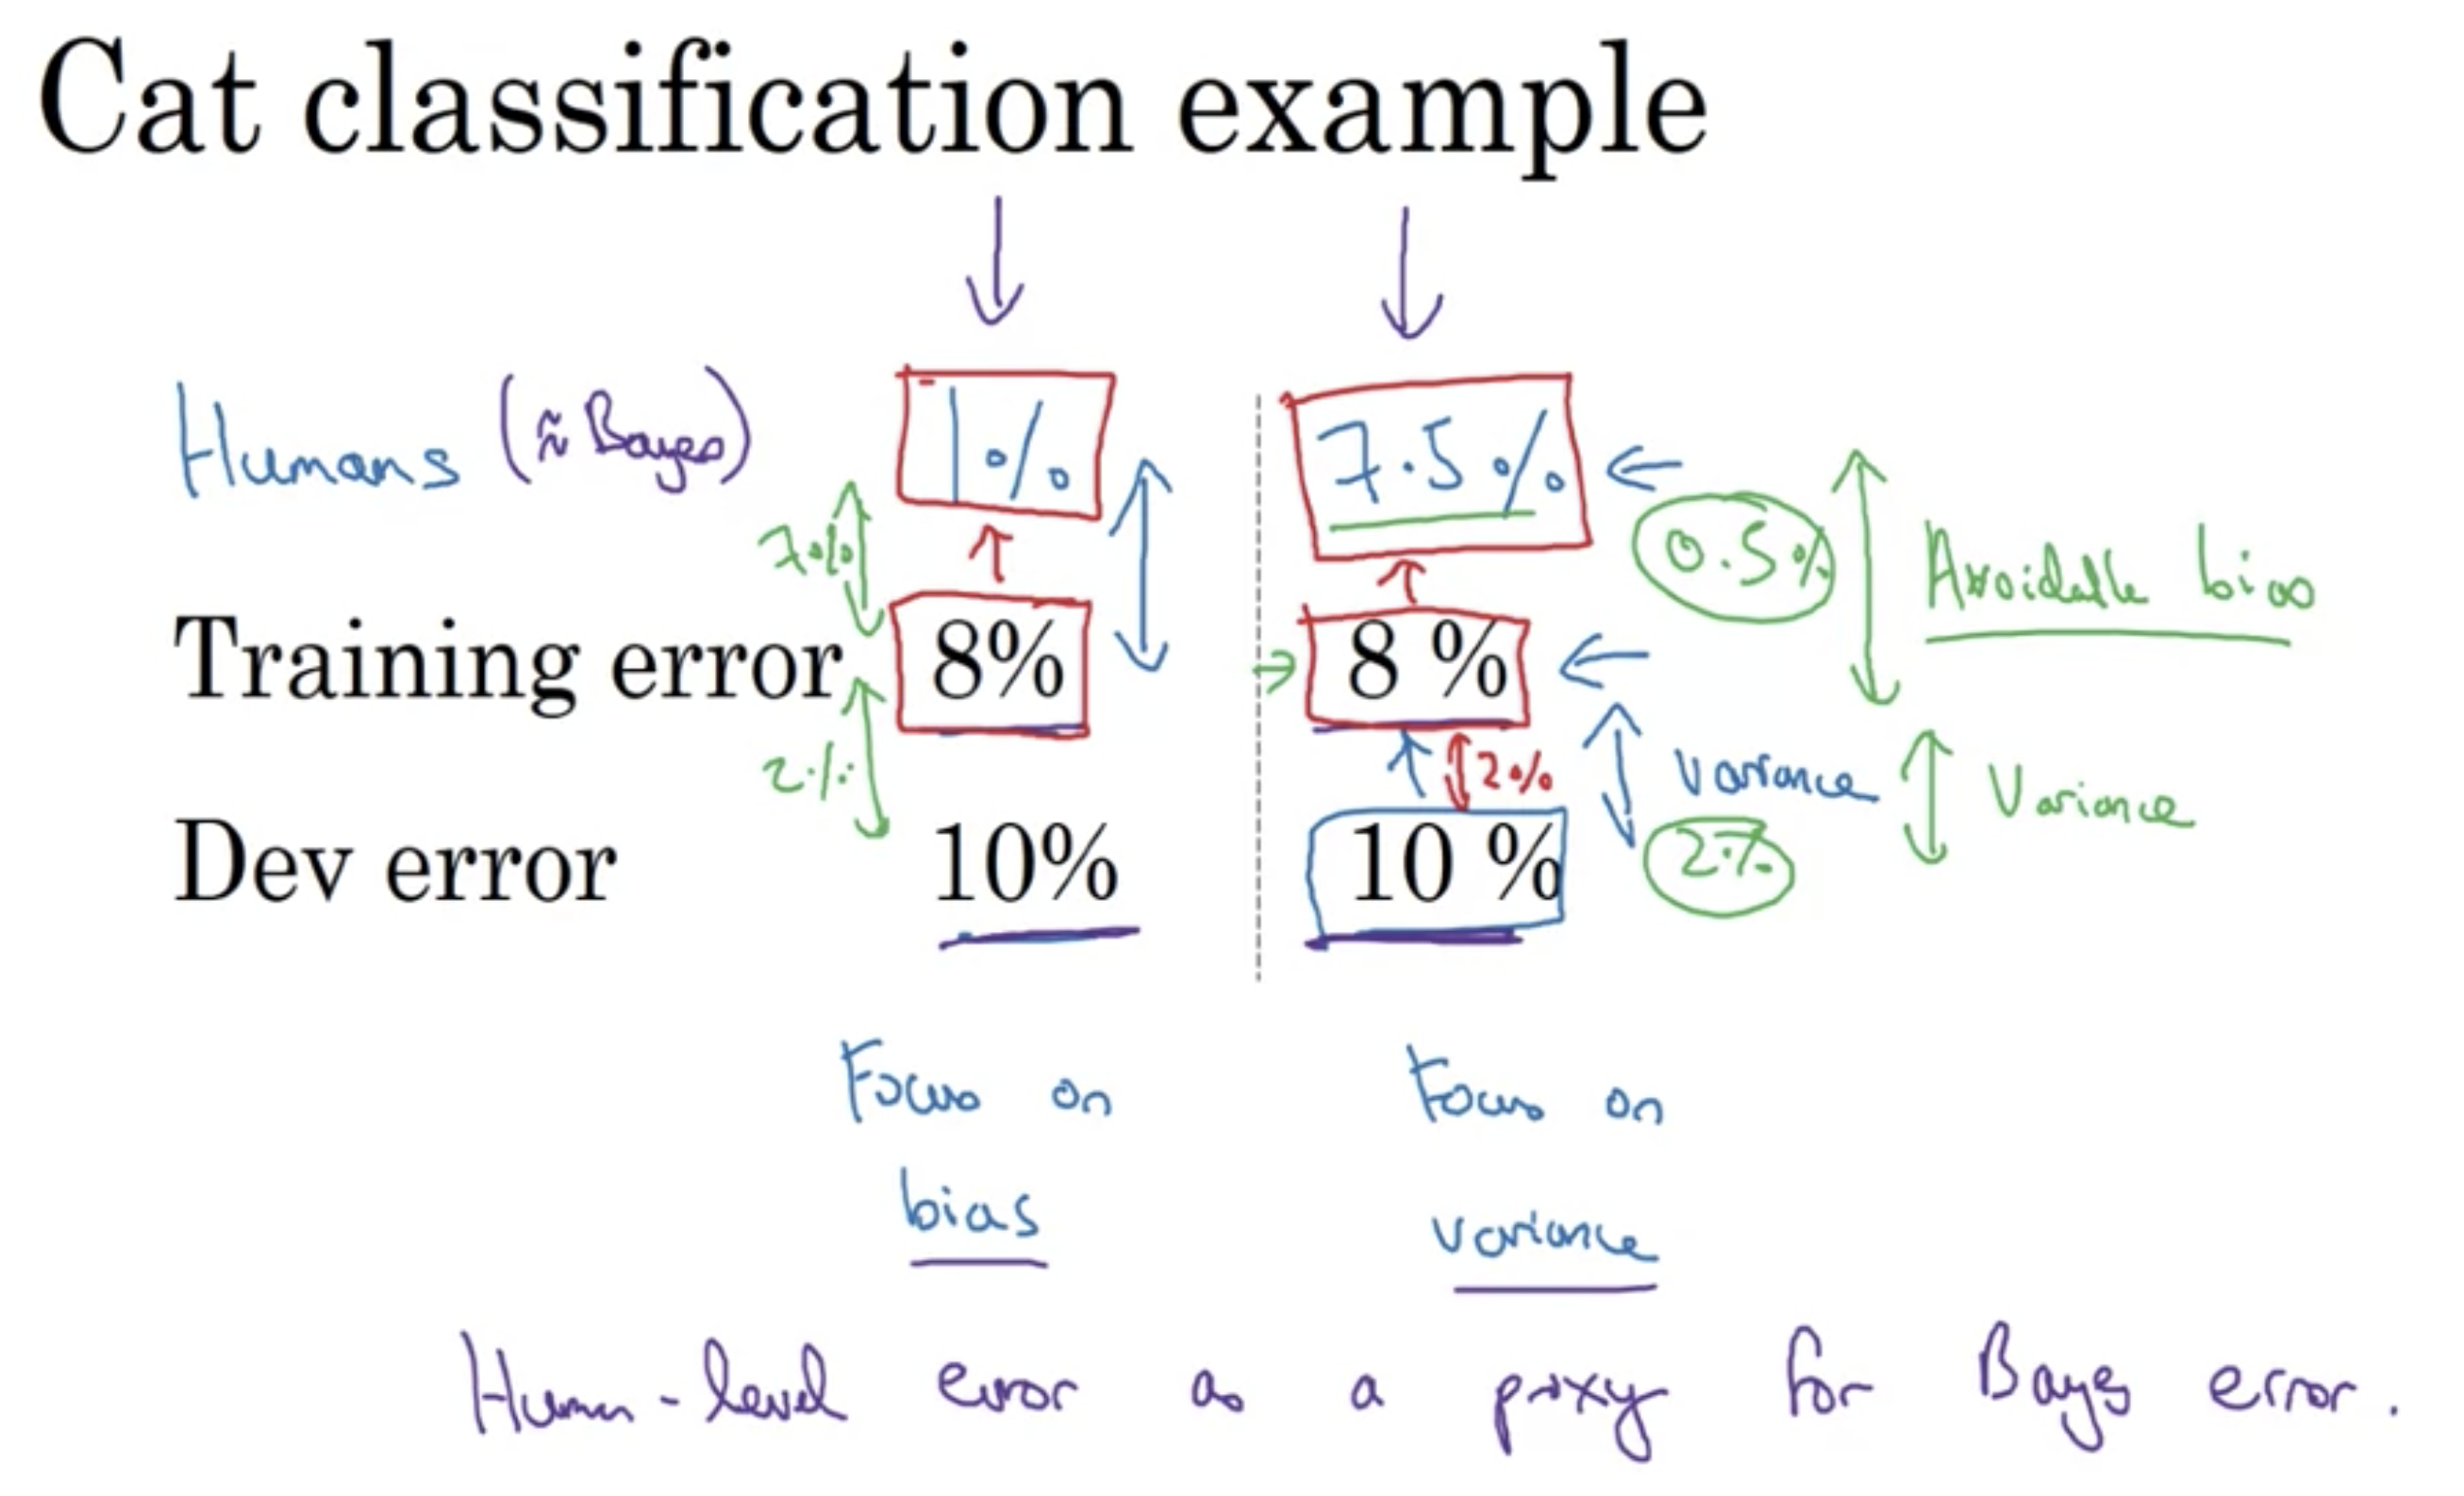 Cat classification example
Humans (≈ Bayes) 1% 7.5%
7% 0.5% Avoidable bias
Training error 8% 8 %
2% 2% Variance Variance
Dev error 10% 10 % 2%
Focus on Focus on
bias variance
Human-level error as a proxy for Bayes error.